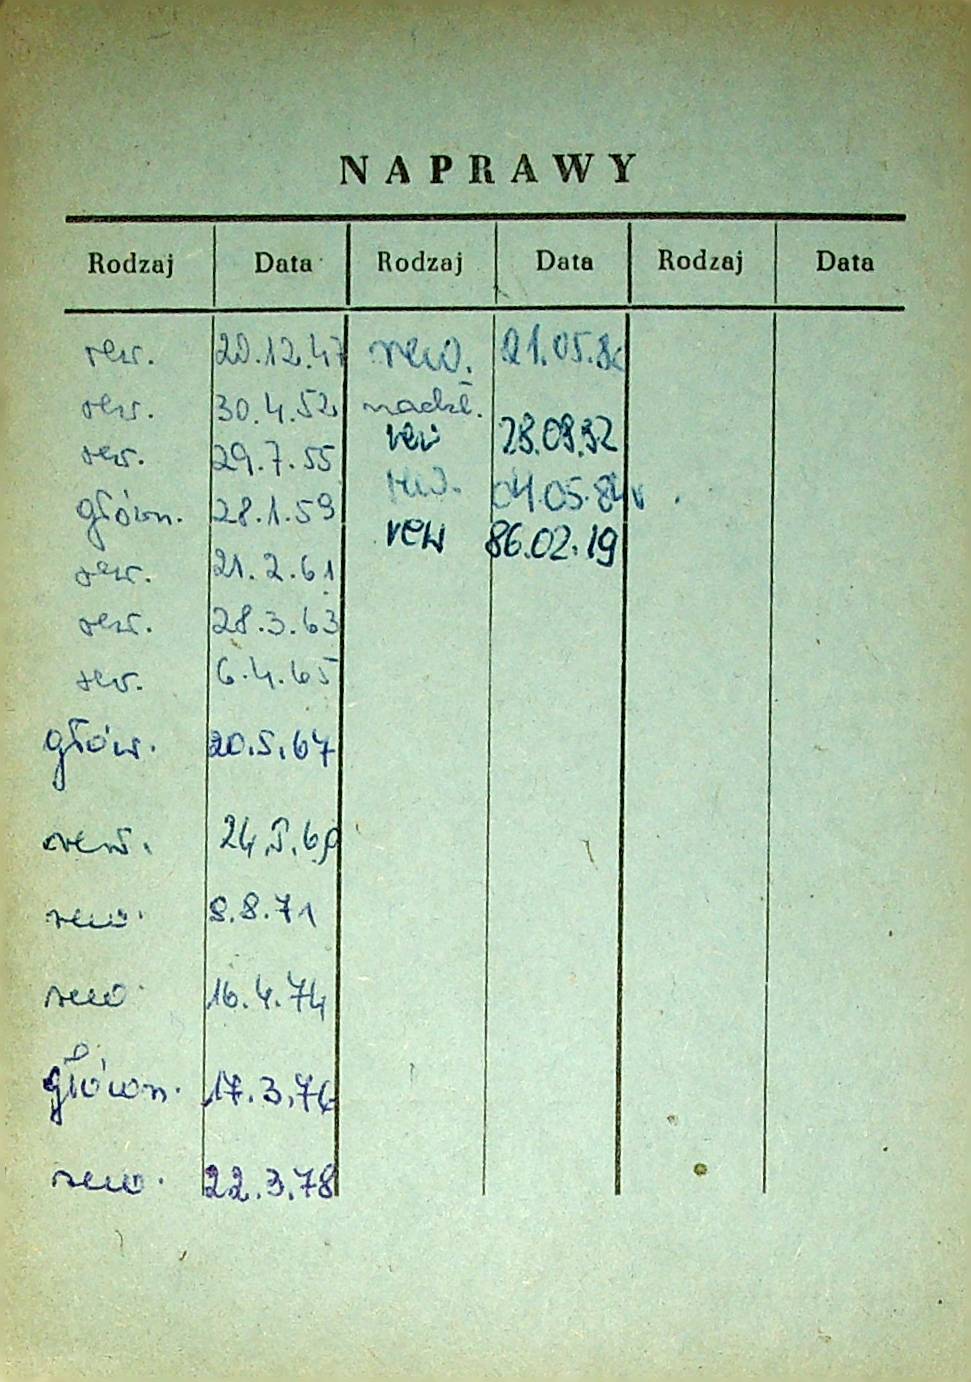 NAPRAWY
Rodzaj Data Rodzaj Data Rodzaj Data
rew. 20.12.47 rew. 21.05.80
rew. 30.4.52 nadzt.
rew. 29.7.55 rew 28.09.82
główn. 28.1.59 rew. 04.05.84r
rew. 21.2.61 rew 86.02.19
rew. 28.3.63
rew. 6.4.65
główn. 20.5.67
rew. 24.5.69
rew. 8.8.71
rew. 16.4.74
główn. 17.3.76
rew. 22.3.78